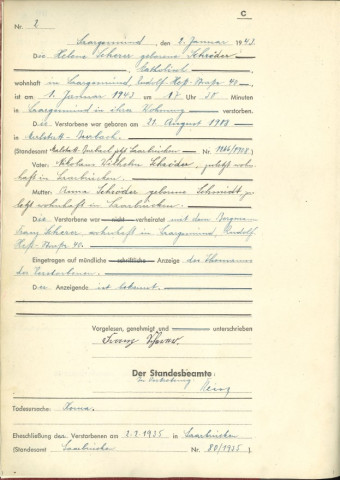 C
Nr. 2
Saargemünd, den 2. Januar 1943
Die Helene Scherer geborene Schröder,
Katholisch,
wohnhaft in Saargemünd, Rudolf-Heß-Straße 40,
ist am 1. Januar 1943 um 17 Uhr Minuten
in Saargemünd in ihrer Wohnung verstorben.
Die Verstorbene war geboren am 21. August 1908
in Malstatt-Burbach.
(Standesamt Malstatt-Burbach jetzt Saarbrücken Nr. 1908)
Vater: Nikolaus Wilhelm Schröder, zuletzt wohn-
haft in Saarbrücken.
Mutter: Anna Schröder geborene Schmidt, zu-
letzt wohnhaft in Saarbrücken.
Die Verstorbene war nicht verheiratet mit dem
Franz Scherer, wohnhaft in Saargemünd, Rudolf-
Heß-Straße 40.
Eingetragen auf mündliche schriftliche Anzeige des Ehemannes
der Verstorbenen.
Der Anzeigende ist bekannt.
Vorgelesen, genehmigt und unterschrieben
Franz Scherer
Der Standesbeamte:
In Vertretung
Todesursache: Koma.
Eheschließung der Verstorbenen am 2.2.1935 in Saarbrücken
(Standesamt Saarbrücken Nr. 80/1935)